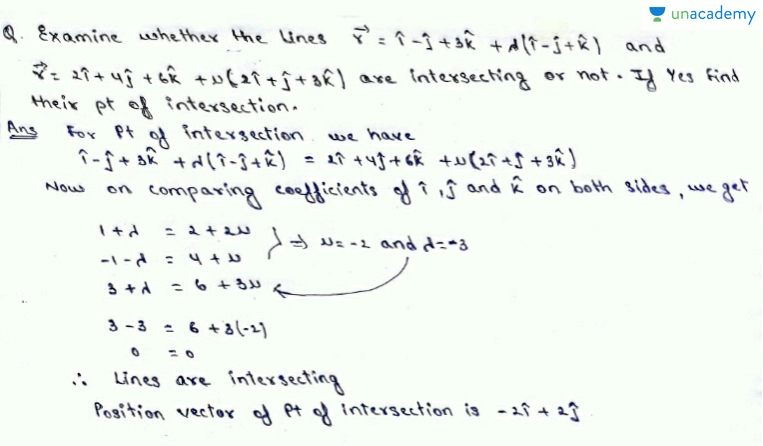 unacademy
Q. Examine whether the lines r⃗ = î-ĵ+3k̂ +λ(î-ĵ+k̂) and
r⃗= 2î+4ĵ+6k̂ +μ(2î+ĵ+3k̂) are intersecting or not. If Yes Find
their pt of intersection.
Ans For Pt of intersection we have
î-ĵ+3k̂ +λ(î-ĵ+k̂) = 2î+4ĵ+6k̂ +μ(2î+ĵ+3k̂)
Now on comparing coefficients of î, ĵ and k̂ on both sides, we get
1+λ = 2+2μ
-1-λ = 4+μ } ⇒ μ=-2 and λ=-3
3+λ = 6+3μ
3-3 = 6+3(-2)
0 = 0
∴ Lines are intersecting
Position vector of Pt of intersection is -2î+2ĵ